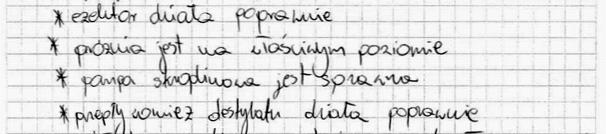 * eżektor działa poprawnie
* próżnia jest na właściwym poziomie
* pompa skroplinowa jest sprawna
* przepływomierz destylatu działa poprawnie